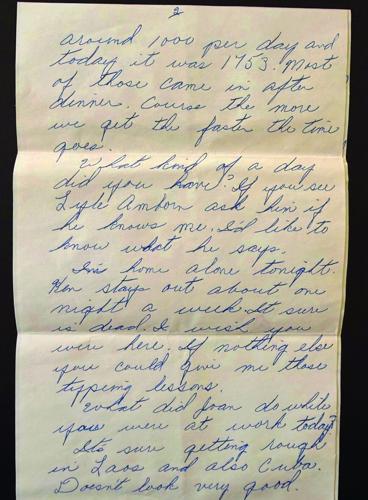 2
around 1000 per day and
today it was 1753. Most
of those came in after
dinner. Course the more
we get the faster the time
goes.
What kind of a day
did you have? If you see
Lyle Amborn ask him if
he knows me. I'd like to
know what he says.
I'm home alone tonight.
Ken stays out about one
night a week. It sure
is dead. I wish you
were here. If nothing else
you could give me those
typeing lessons.
What did Joan do while
you were at work today?
Its sure getting rough
in Laos and also Cuba.
Doesnt look very good.